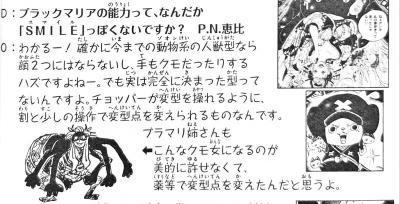 D：ブラックマリアの能力って、なんだか
「SMILE」っぽくないですか？　P.N.恵比
O：わかるー！確かに今までの動物系の人獣型なら
顔2つにはならないし、手もクモだったりする
ハズですよねー。でも実は完全に決まった型って
ないんですよ。チョッパーが変型を操れるように、
割と少しの操作で変型点を変えられるものなんです。
ブラマリ姉さんも
←こんなクモ女になるのが
美的に許せなくて、
薬等で変型点を変えたんだと思うよ。